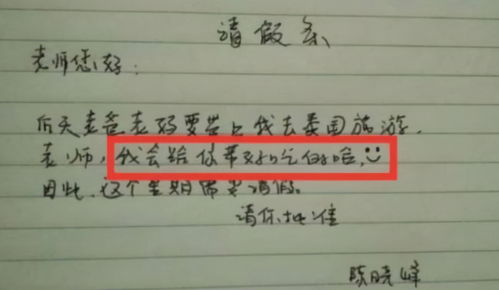 请假条
老师您好:
后天老爸老妈要带上我去泰国旅游,
老师,我会给你带好吃的哈,
因此,这个星期需要请假。
请你批准
陈晓峰